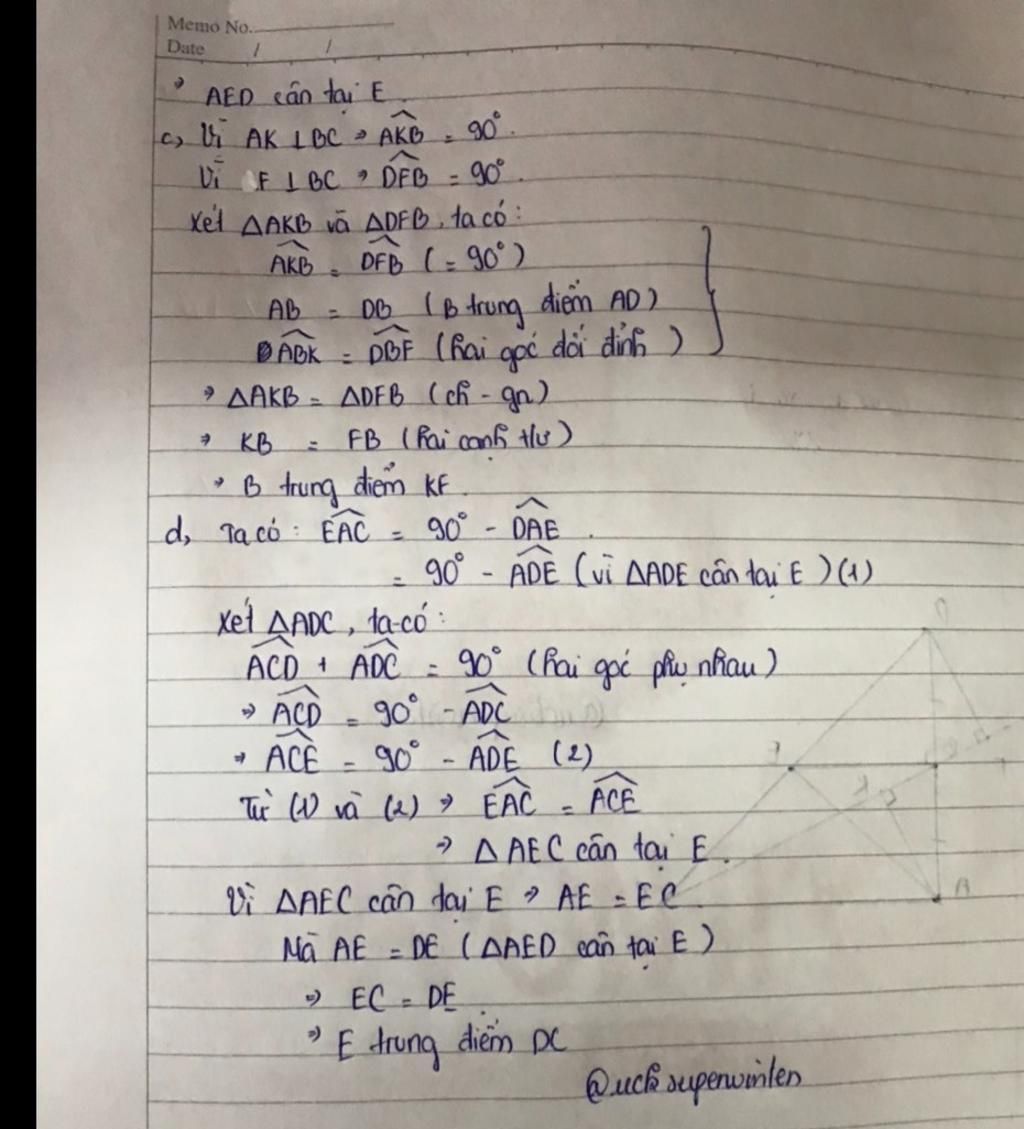 Memo No.
Date / /
⇒ AED cân tại E
c, Vì AK ⊥ BC ⇒ \widehat{AKB} = 90°.
Vì F ⊥ BC ⇒ \widehat{DFB} = 90°.
Xét ΔAKB và ΔDFB, ta có:
\widehat{AKB} = \widehat{DFB} (= 90°)
AB = DB (B trung điểm AD)
\widehat{ABK} = \widehat{DBF} (hai góc đối đỉnh)
⇒ ΔAKB = ΔDFB (ch - gn)
⇒ KB = FB (hai cạnh t/ư)
⇒ B trung điểm KF.
d, Ta có: \widehat{EAC} = 90° - \widehat{DAE}.
= 90° - \widehat{ADE} (vì ΔADE cân tại E) (1)
Xét ΔADC, ta có:
\widehat{ACD} + \widehat{ADC} = 90° (hai góc phụ nhau)
⇒ \widehat{ACD} = 90° - \widehat{ADC}
⇒ \widehat{ACE} = 90° - \widehat{ADE} (2)
Từ (1) và (2) ⇒ \widehat{EAC} = \widehat{ACE}
⇒ ΔAEC cân tại E.
Vì ΔAEC cân tại E ⇒ AE = EC.
Mà AE = DE (ΔAED cân tại E)
⇒ EC = DE
⇒ E trung điểm DC